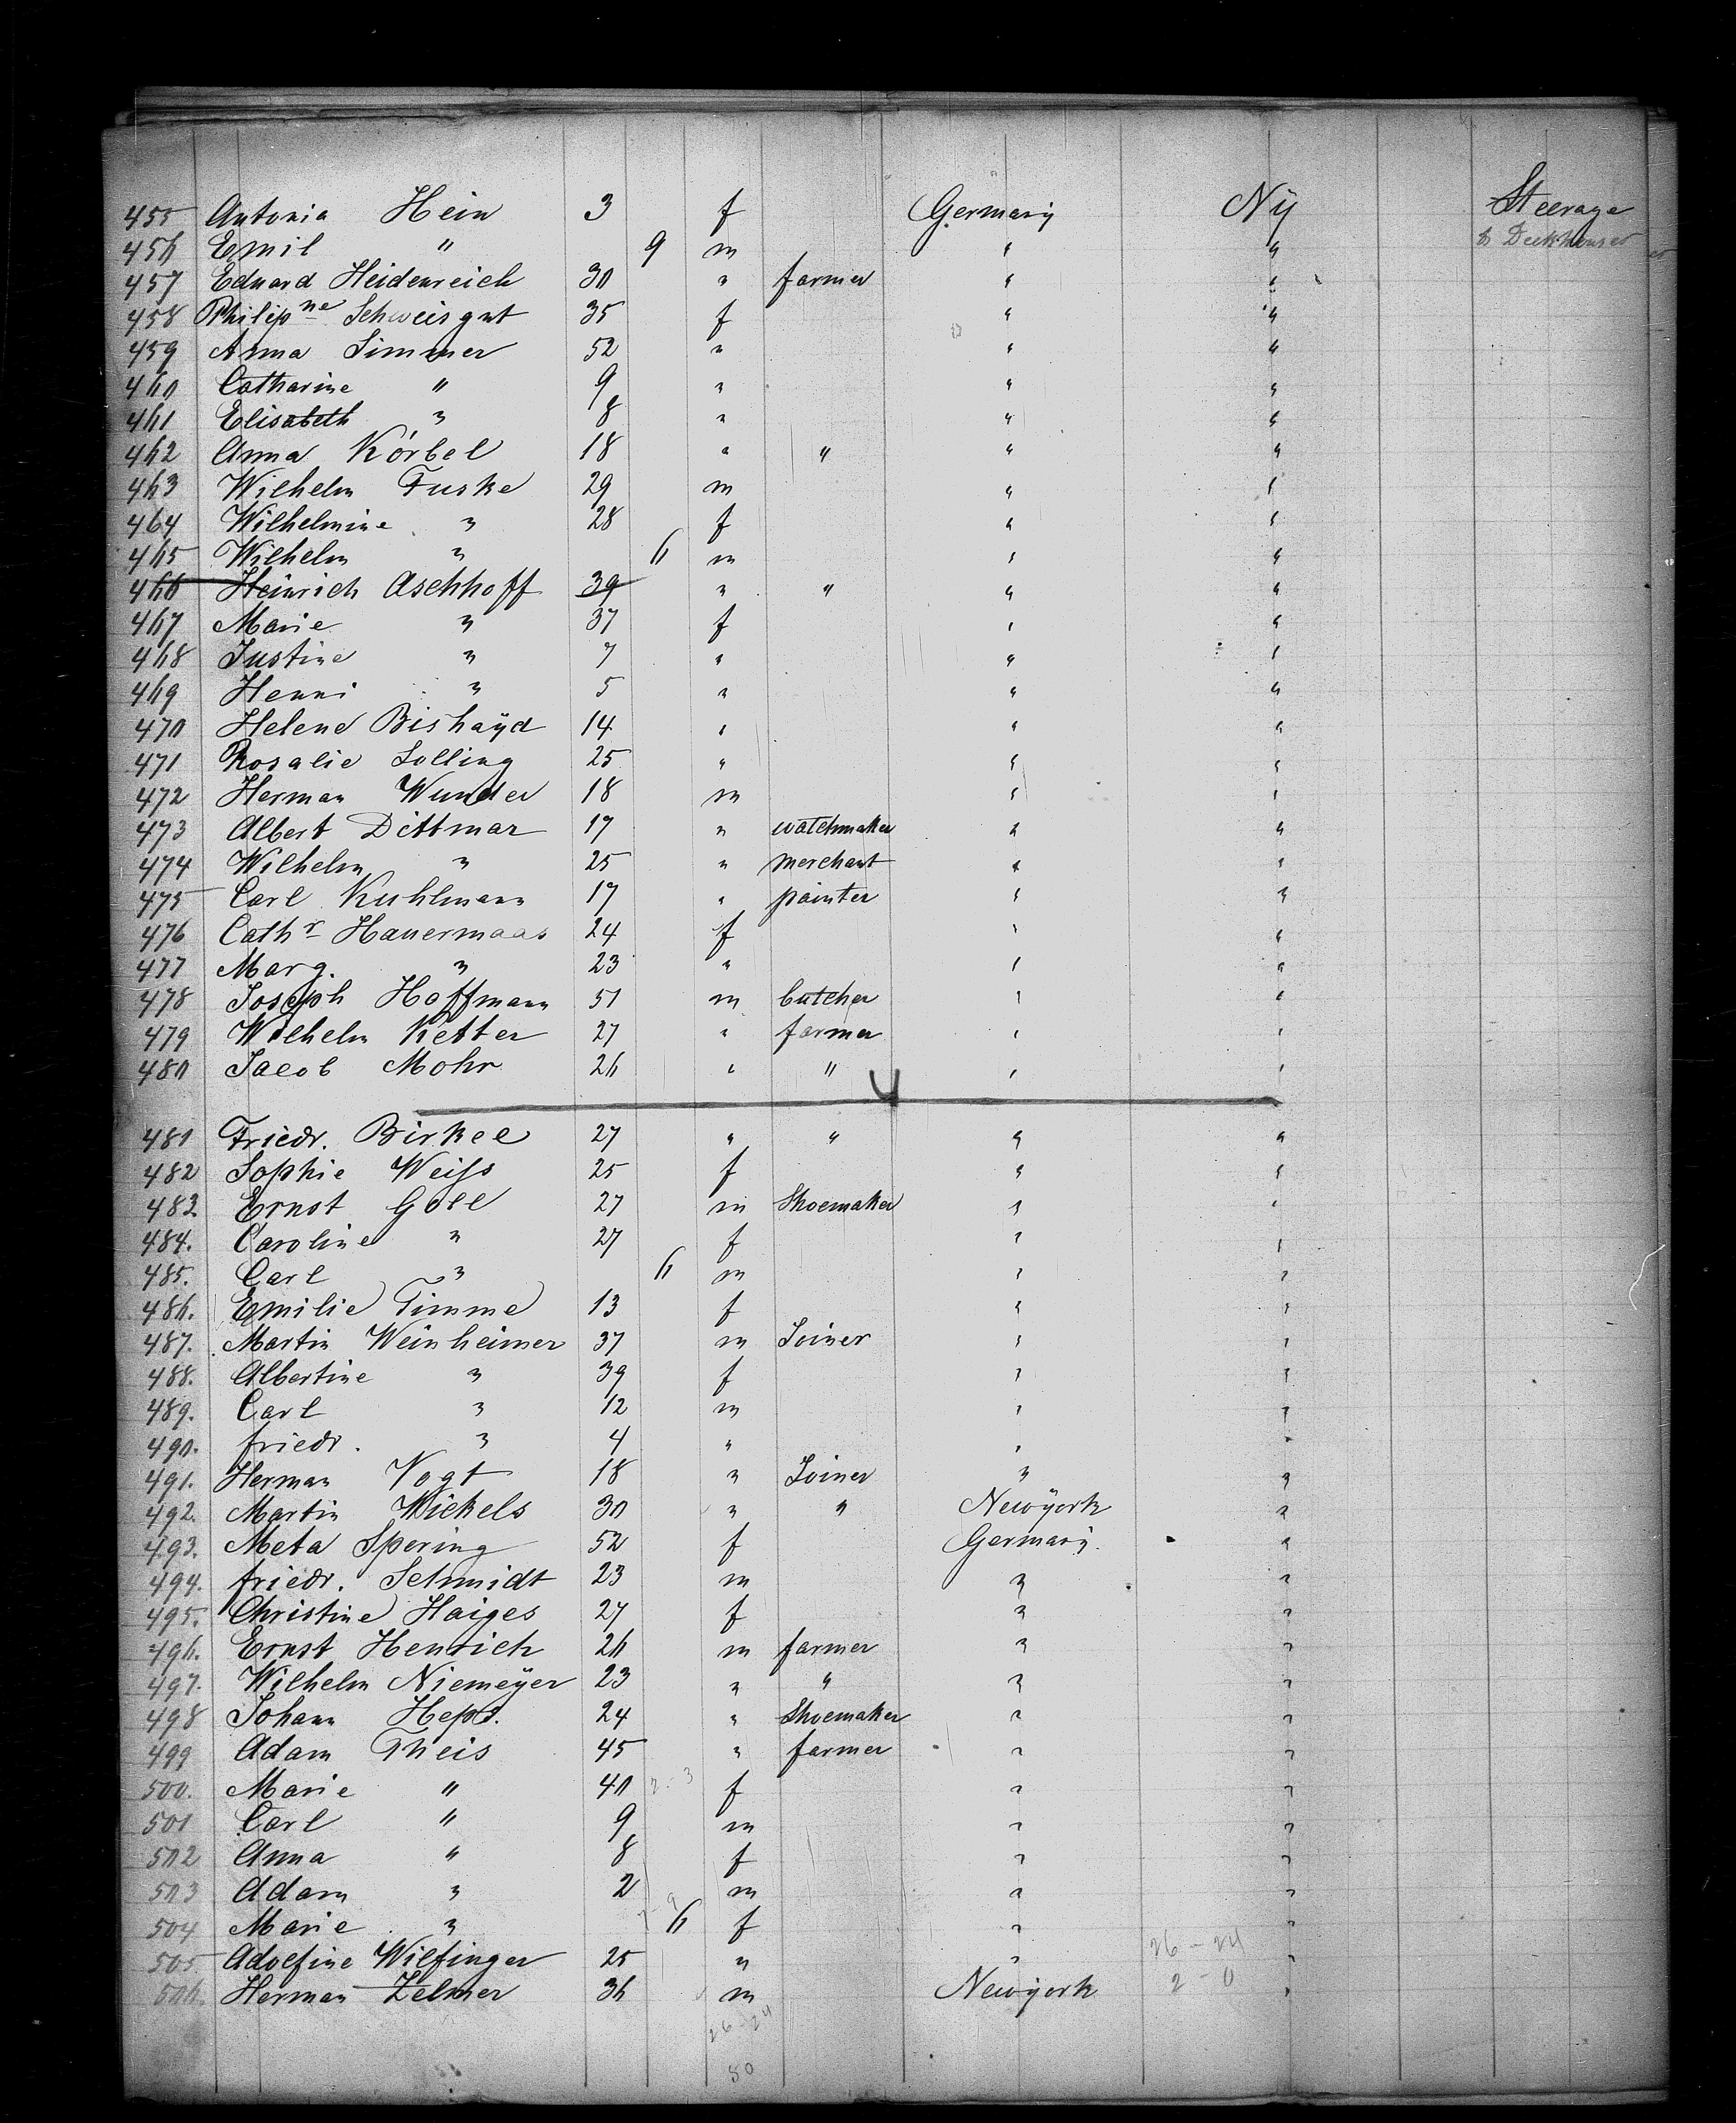 455 Antonia Hein 3 f Germany NY Steerage
456 Emil " 9 m " " & Deckhouses
457 Eduard Heidenreich 30 " farmer " "
458 Philipne Schweisgut 35 f " "
459 Anna Simmer 52 " " "
460 Catharine " 9 " " "
461 Elisabeth " 8 " " "
462 Anna Körbel 18 " " " "
463 Wilhelm Fuske 29 m " "
464 Wilhelmine " 28 f " "
465 Wilhelm " 6 m " "
466 Heinrich Aschhoff 39 " " " "
467 Marie " 37 f " "
468 Justine " 7 " " "
469 Henni " 5 " " "
470 Helene Bishayd 14 " " "
471 Rosalie Solling 25 " " "
472 Herman Wunder 18 m " "
473 Albert Dittmar 17 " watchmaker " "
474 Wilhelm " 25 " merchant " "
475 Carl Kuhlmann 17 " painter " "
476 Cathr Hauermaas 24 f " "
477 Marg. " 23 " " "
478 Joseph Hoffmann 51 m butcher " "
479 Wilhelm Ketter 27 " farmer " "
480 Jacob Mohr 26 " " " "
4
481 Friedr. Birkel 27 " " " "
482 Sophie Weiss 25 f " "
483. Ernst Goll 27 m Shoemaker " "
484. Caroline " 27 f " "
485. Carl " 6 m " "
486. Emilie Timme 13 f " "
487. Martin Weinheimer 37 m Joiner " "
488. Albertine " 39 f " "
489. Carl " 12 m " "
490. friedr. " 4 " " "
491. Herman Vogt 18 " Joiner " "
492. Martin Wickels 30 " " Newyork "
493. Meta Spering 52 f Germany. "
494. friedr. Schmidt 23 m " "
495. Christine Haiges 27 f " "
496. Ernst Henrich 26 m farmer " "
497. Wilhelm Niemeyer 23 " " " "
498 Johann Heps. 24 " Shoemaker " "
499 Adam Theis 45 " farmer " "
500. Marie " 40 2-3 f " "
501 Carl " 9 m " "
502 Anna " 8 f " "
503 Adam " 2 m " "
504 Marie " 6 f " "
505 Adolfine Wilfinger 25 " " 26-24 "
506. Herman Zelmer 36 m Newyork 2-0 "
26-24
50